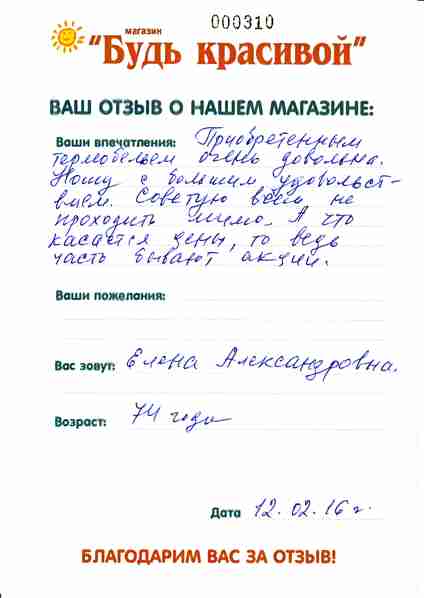 000310
магазин
"Будь красивой"
ВАШ ОТЗЫВ О НАШЕМ МАГАЗИНЕ:
Ваши впечатления: Приобретенным
термобельем очень довольна.
Ношу с большим удовольст-
вием. Советую всем не
проходить мимо. А что
касается цены, то ведь
часть бывают акции.
Ваши пожелания:
Вас зовут: Елена Александровна.
Возраст: 74 года
Дата 12.02.16 г.
БЛАГОДАРИМ ВАС ЗА ОТЗЫВ!